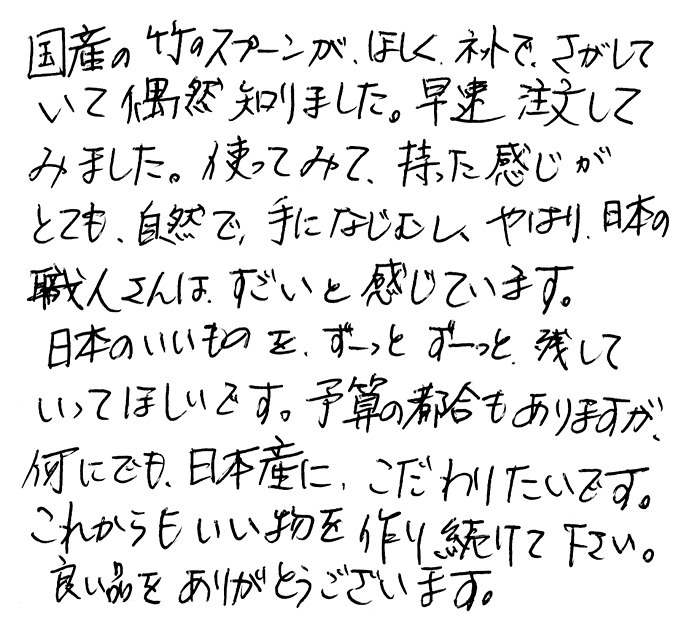 国産の竹のスプーンが、ほしく、ネットで、さがして
いて偶然知りました。早速注文して
みました。使ってみて、持った感じが
とても、自然で、手になじむし、やはり、日本の
職人さんは、すごいと感じています。
日本のいいものを、ずーっとずーっと、残して
いってほしいです。予算の都合もありますが、
何にでも、日本産に、こだわりたいです。
これからもいい物を作り続けて下さい。
良い品をありがとうございます。